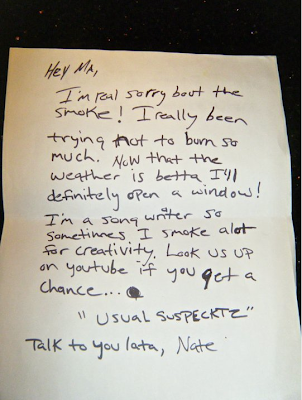 Hey Ma,
I'm real sorry bout the
smoke! I really been
trying not to burn so
much. Now that the
weather is betta I'll
definitely open a window!
I'm a song writer so
sometimes I smoke alot
for creativity. Look us up
on youtube if you get a
chance...
"USUAL SUSPECKTZ"
Talk to you lata, Nate